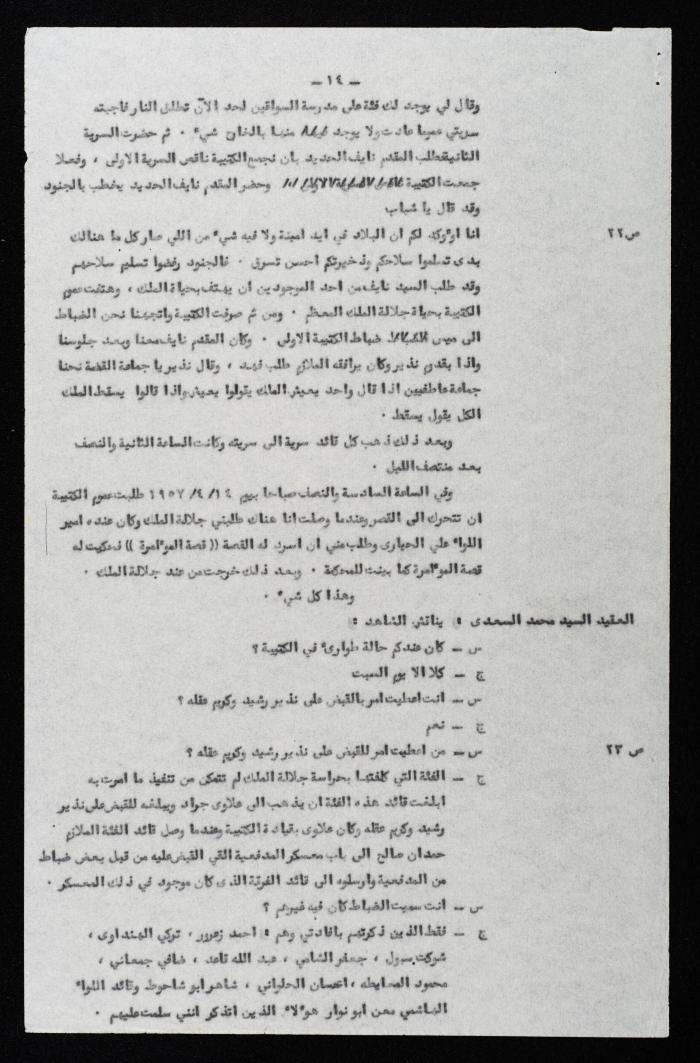 — ١٤ —
وقال لي يوجد لك فئة على مدرسة السواقين لحد الآن تطلق النار فاجبته
سريتي عموما عادت ولا يوجد منها بالخارج شيء . ثم حضرت السرية
الثانية فطلب المقدم نايف الحديد بان نجمع الكتيبة ناقص السرية الاولى ، وفعلا
جمعت الكتيبة وحضر المقدم نايف الحديد يخطب بالجنود
وقد قال يا شباب
ص ٢٢
انا اؤكد لكم ان البلاد في ايد امينة ولا فيه شيء من اللي صار كل ما هنالك
بدى تسلموا سلاحكم وذخيرتكم احسن تسرق . فالجنود رفضوا تسليم سلاحهم
وقد طلب السيد نايف من احد الموجودين ان يهتف بحياة الملك ، وهتفت عموم
الكتيبة بحياة جلالة الملك المعظم . ومن ثم صرفت الكتيبة واتجهنا نحن الضباط
الى ميس ضباط الكتيبة الاولى . وكان المقدم نايف معنا وبعد جلوسنا
واذا بقدوم نذير وكان يرافقه الملازم طلب فهد ، وقال نذير يا جماعة القصة نحنا
جماعة عاطفيين اذا قال واحد يعيش الملك يقولوا يعيش واذا قالوا يسقط الملك
الكل يقول يسقط .
وبعد ذلك ذهب كل قائد سرية الى سريته وكانت الساعة الثانية والنصف
بعد منتصف الليل .
وفي الساعة السادسة والنصف صباحا بيوم ١٤/ ٤/ ١٩٥٧ طلبت عموم الكتيبة
ان تتحرك الى القصر وعندما وصلت انا هناك طلبني جلالة الملك وكان عنده امير
اللواء علي الحيارى وطلب مني ان اسرد له القصة (( قصة المؤامرة )) فحكيت له
قصة المؤامرة كما بينت للمحكمة . وبعد ذلك خرجت من عند جلالة الملك .
وهذا كل شيء .
العقيد السيد محمد السعدى : يناقش الشاهد :
س — كان عندكم حالة طوارئ في الكتيبة ؟
ج — كلا الا يوم السبت
س — انت اعطيت امر بالقبض على نذير رشيد وكريم عقله ؟
ج — نعم
ص ٢٣
س — من اعطيت امر للقبض على نذير رشيد وكريم عقله ؟
ج — الفئة التي كلفتها بحراسة جلالة الملك لم تتمكن من تنفيذ ما امرت به
ابلغت قائد هذه الفئة ان يذهب الى علاوى جراد ويبلغه للقبض على نذير
رشيد وكريم عقله وكان علاوى بقيادة الكتيبة وعندما وصل قائد الفئة الملازم
حمدان صالح الى باب معسكر المدفعية القي القبض عليه من قبل بعض ضباط
من المدفعية وارسلوه الى قائد الفرقة الذى كان موجود في ذلك المعسكر .
س — انت سميت الضباط كان فيه غيرهم ؟
ج — فقط الذين ذكرتهم بافادتي وهم : احمد زعرور ، تركي الهنداوى ،
شوكت سبول ، جعفر الشامي ، عبد الله قاعد ، ضافي جمعاني ،
محمود المعايطه ، احسان الحلواني ، شاهر ابو شاحوط وقائد اللواء
الهاشمي معن ابو نوار هؤلاء الذين اتذكر انني سلمت عليهم .